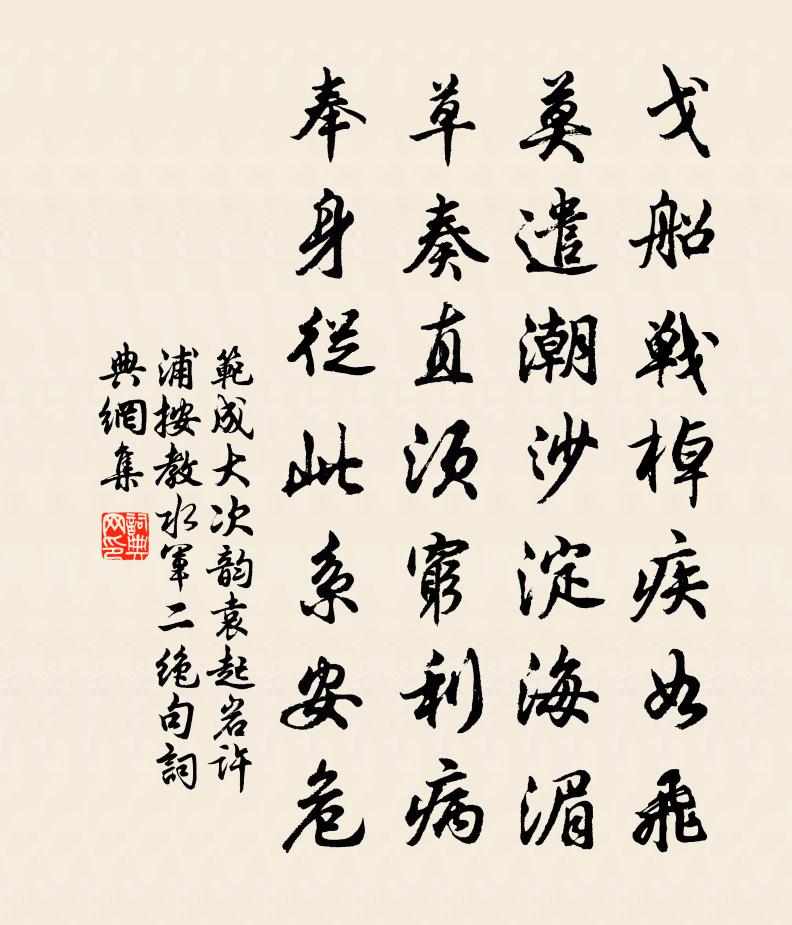 戈船戰棹疾如飛
莫遣潮沙淀海湄
草奏直須窮利病
奉身從此系安危
範成大次韵袁起岩許
浦按教水軍二絶句詞
典網集
詞典網印